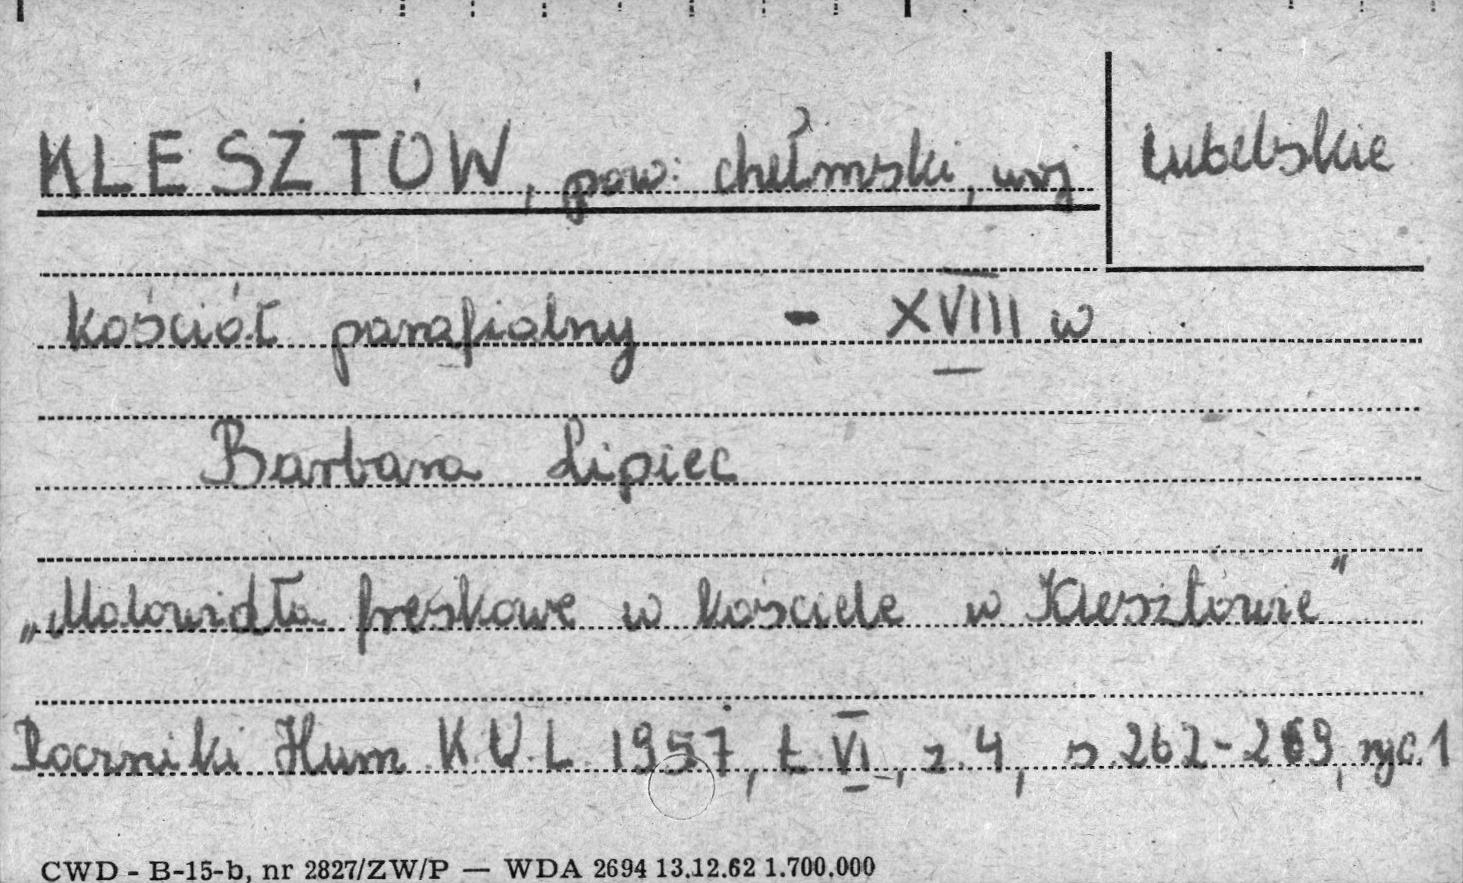 KLESZTÓW, pow. chełmski, woj
Lubelskie
kościół parafialny - XVIII w
Barbara Lipiec
„Malowidła freskowe w kościele w Klesztowie"
Roczniki Hum K.U.L 1957, t. VI, z. 4, s. 262-269, ryc. 1
CWD - B-15-b, nr 2827/ZW/P — WDA 2694 13.12.62 1.700.000